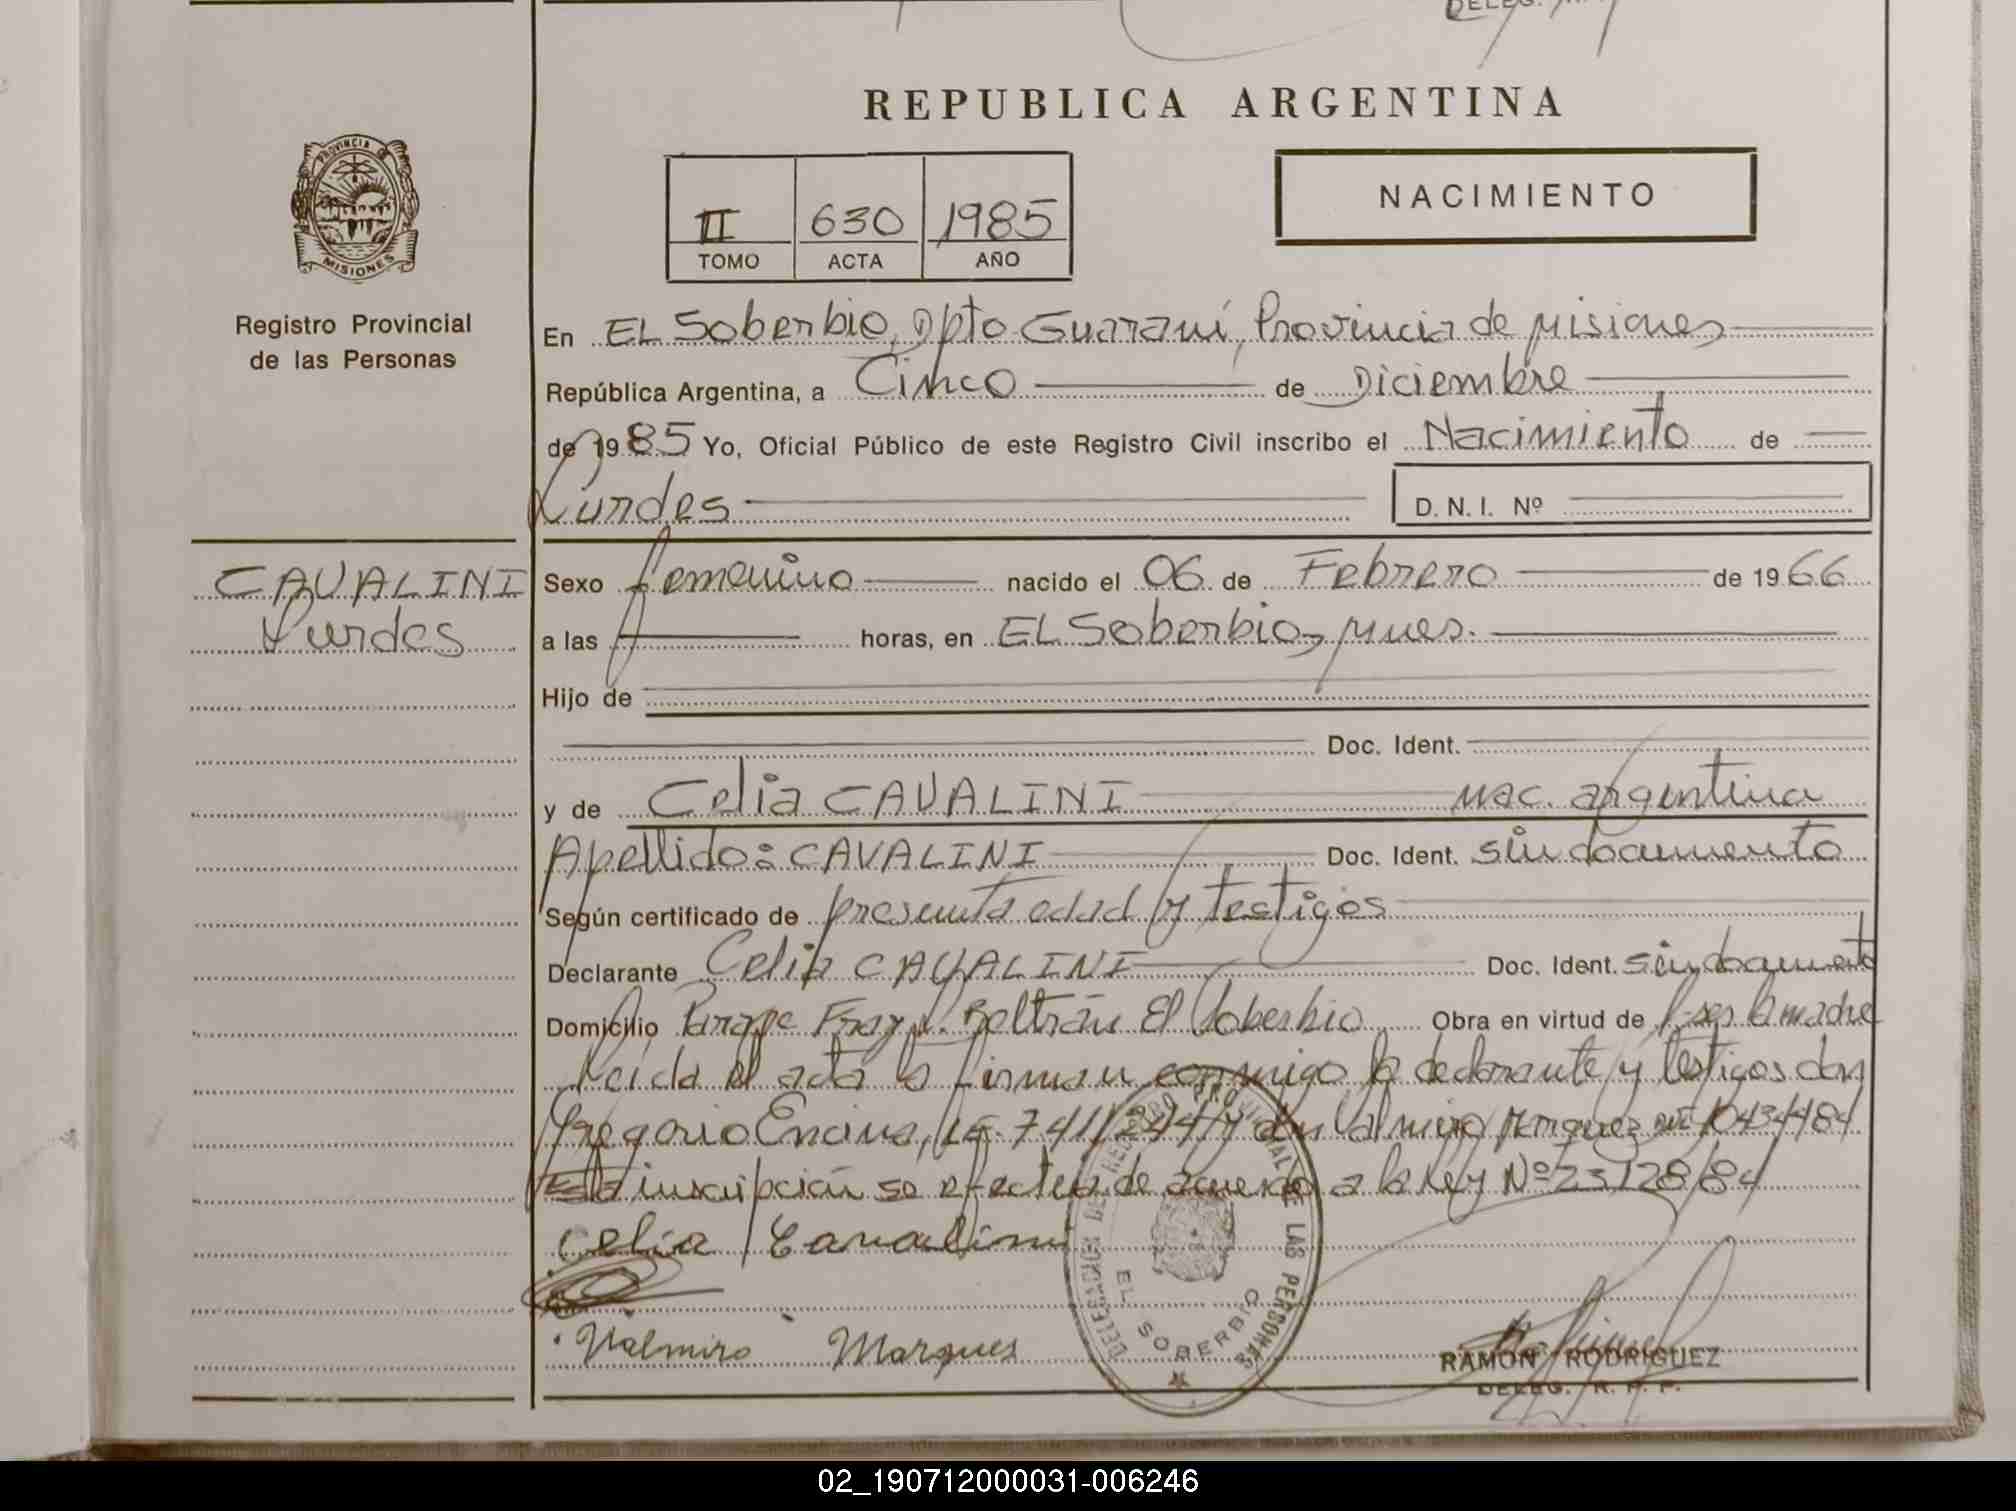 DELEG.
REPUBLICA ARGENTINA
PROVINCIA DE
MISIONES
II 630 1985
TOMO ACTA AÑO
NACIMIENTO
Registro Provincial
de las Personas
En EL Soberbio, Dpto Guaraní, Provincia de Misiones
República Argentina, a Cinco de Diciembre
de 1985 Yo, Oficial Público de este Registro Civil inscribo el Nacimiento de
Lurdes D. N. I. Nº
CAVALINI
Lurdes
Sexo femenino nacido el 06 de Febrero de 1966
a las horas, en EL Soberbio, Mnes.
Hijo de
Doc. Ident.
y de Celia CAVALINI nac. argentina
Apellido: CAVALINI Doc. Ident. sin documento
Según certificado de presunta edad y testigos
Declarante Celia CAVALINI Doc. Ident. sin documento
Domicilio Paraje Fray L. Beltrán El Soberbio Obra en virtud de ser la madre
Leída el acta la firman conmigo la declarante y testigos don
Gregorio Encina, y don Valmiro Marquez 10434484
Esta inscripción se efectua de acuerdo a la Ley Nº 23128/84
Celia Cavalini
Valmiro Marques
DELEGACION DEL REGISTRO PROVINCIAL DE LAS PERSONAS
EL SOBERBIO
RAMON RODRIGUEZ
DELEG. R. P. P.
02_190712000031-006246